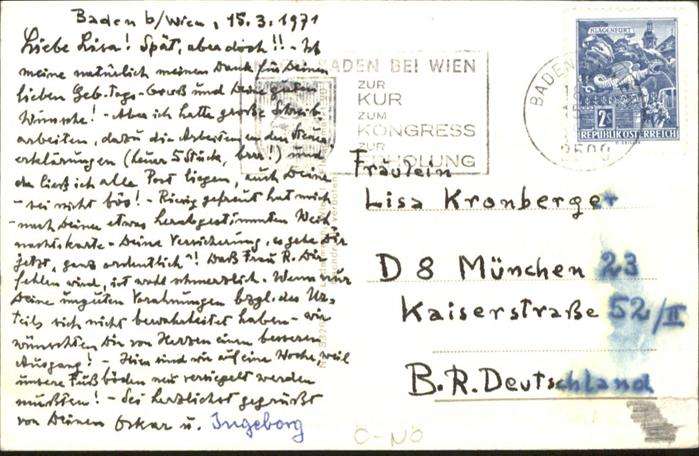 Baden b/Wien, 15.3.1971
Liebe Lisa! Spät, aber doch!! - Ich
meine natürlich meinen Dank für Deinen
lieben Geb.-Tags-Gruß und Deine guten
Wünsche! - Aber ich hatte große Schreib-
arbeiten, dazu die Arbeiten an den Steuer-
erklärungen (heuer 5 Stück, brr!) und
da ließ ich alle Post liegen, auch Deine
- sei nicht bös! - Riesig gefreut hat mich
- nach Deiner etwas herabgestimmten Weih
nachtskarte - Deine Versicherung, es gehe Dir
jetzt „ganz ordentlich"! Daß Frau R. Dir
fehlen wird, ist wohl schmerzlich. Wenn nur
Deine unguten Vorahnungen bzgl. des Ur-
teils sich nicht bewahrheitet haben - wir
wünschten Dir von Herzen einen besseren
Ausgang! - Hier sind wir auf eine Woche, weil
unsere Fußböden neu versiegelt werden
mußten! - Sei herzlichst gegrüßt
von Deinen Oskar u. Ingeborg
BADEN BEI WIEN
ZUR
KUR
ZUM
KONGRESS
ZUR
ERHOLUNG
BADEN
2500
KLAGENFURT
2S
REPUBLIK ÖSTERREICH
Fräulein
Lisa Kronberger
D 8 München 23
Kaiserstraße 52/II
B.R. Deutschland